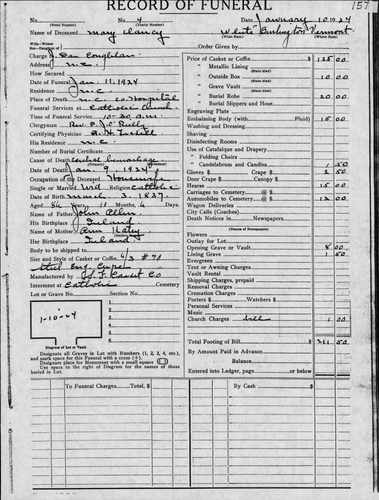 RECORD OF FUNERAL
157
No.
(Total Number)
No. 4
(Yearly Number)
Date January 10 1924
Name of Deceased Mary Clancy
White
(What Race)
Burlington Vermont
(Where Born)
Charge J. Dan Coughlan
Address N.C.
How Secured
Date of Funeral Jan. 11, 1924
Residence N.C.
Place of Death N.C. Co. Hospital
Funeral Services at Catholic Church
Time of Funeral Service 10:30 a.m.
Clergyman Rev. P. J. O' Reilly
Certifying Physician
His Residence N.C.
Number of Burial Certificate
Cause of Death Cerebral hemorrhage
Date of Death Jan. 9 1924
Occupation of Deceased Housewife
Single or Married Wid Religion Catholic
Date of Birth March 3, 1837
Aged 86 Years 10 Months 6 Days
Name of Father John Allen
His Birthplace Ireland
Name of Mother Ann
Her Birthplace Ireland
Body to be shipped to
Size and Style of Casket or Coffin 6/3 #70
Manufactured by Casket Co
Interment at Catholic Cemetery
Lot or Grave No. Section No.
1-10-24
Diagram of Lot or Vault
Designate all Graves in Lot with Numbers (1, 2, 3, 4, etc.),
and mark space for this Funeral with a cross (+).
Designate place for Monument with a small square
Use space to the right of Diagram for the names of those
buried in Lot.
Order Given by
Price of Casket or Coffin $ 125 00
" Metallic Lining
" Outside Box 10 00
" Grave Vault
" Burial Robe 20 00
" Burial Slippers and Hose
Engraving Plate
Embalming Body (with Fluid) 15 00
Washing and Dressing
Shaving
Disinfecting Rooms
Use of Catafalque and Drapery
" Folding Chairs
" Candelabrum and Candles 1 50
Gloves $ Crape $ 2 50
Door Crape $ Canopy $
Hearse 15 00
Carriages to Cemetery @ $
Automobiles to Cemetery @ $ 12 00
Wagon Deliveries
City Calls (Coaches)
Death Notices in Newspapers
Flowers
Outlay for Lot
Opening Grave or Vault 8 00
Lining Grave 1 50
Evergreen
Tent or Awning Charges
Vault Rental
Shipping Charges, prepaid
Removal Charges
Cremation Charges
Porters $ Watchers $
Personal Services
Music
Church Charges bell 1 00
Total Footing of Bill $ 211 50
By Amount Paid in Advance
Balance
Entered into Ledger, page or below
To Funeral Charges Total, $
By Cash $